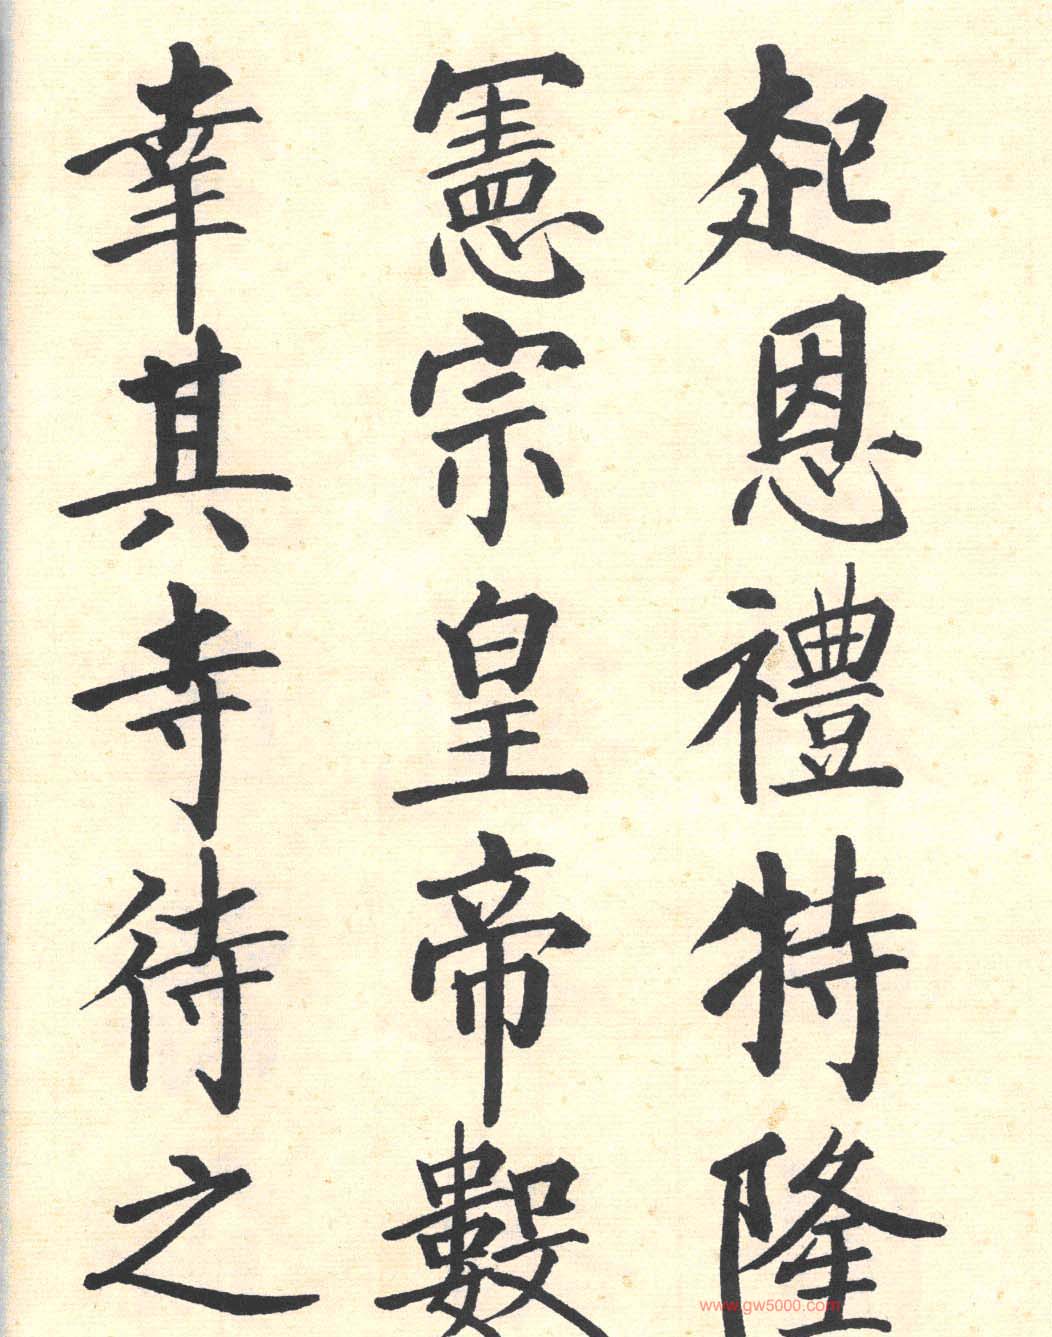 起恩禮特隆
憲宗皇帝數
幸其寺待之
www.gw5000.com